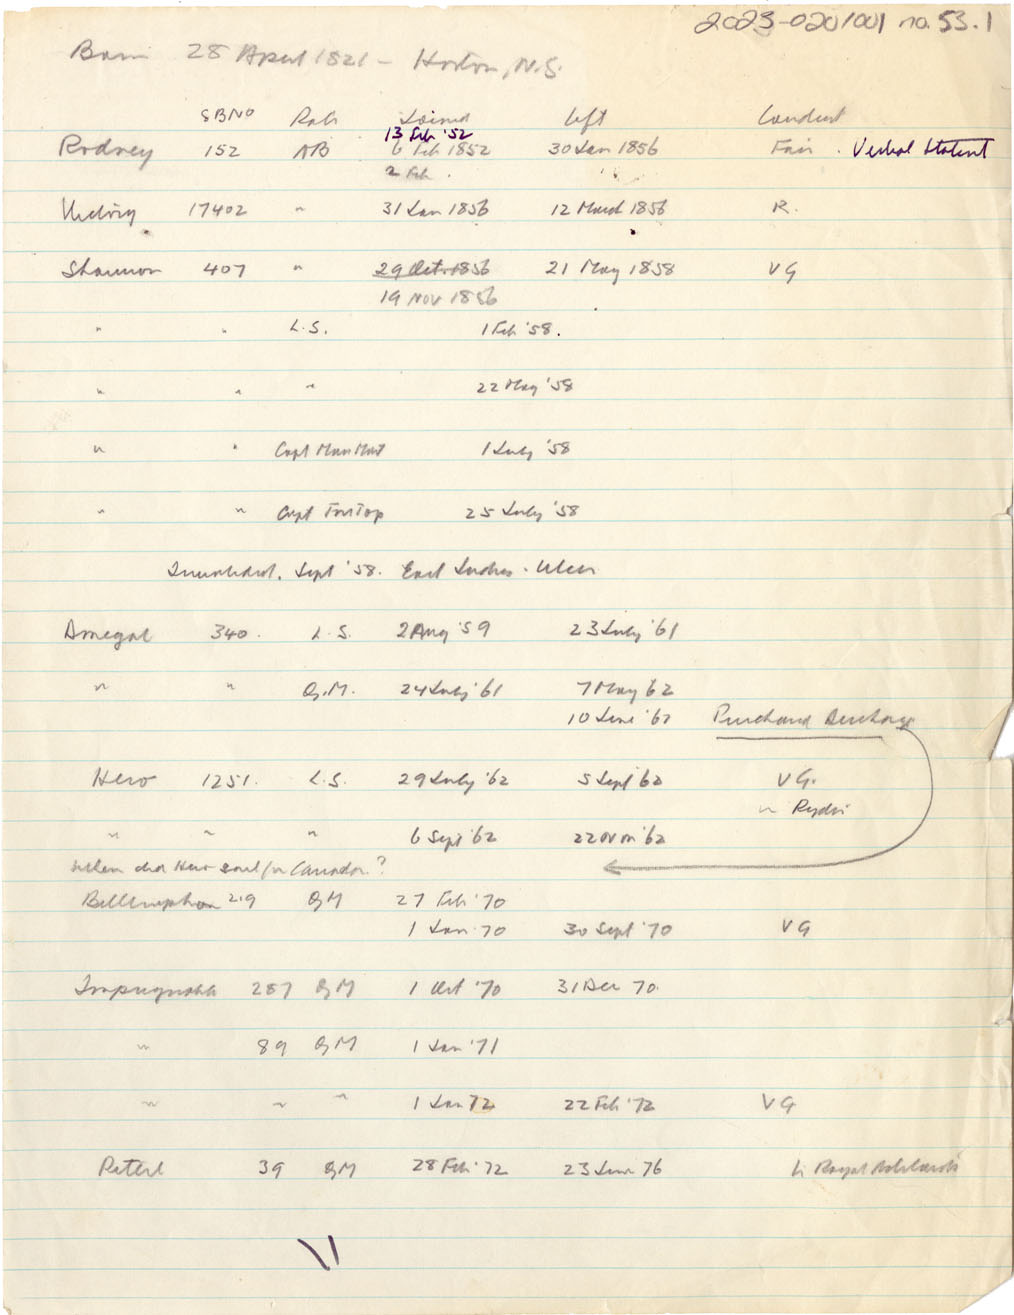 2023-0201001 no. 53.1
Born 28 April 1821 - Horton, N.S.
SBNo Rate Joined Left Conduct
13 Feb '52
Rodney 152 AB 6 Feb 1852 30 Jan 1856 Fair. Verbal Statent
2 Feb.
Victory 17402 " 31 Jan 1856 12 March 1856 R.
Shannon 407 " 29 Oct. 1856 21 May 1858 VG
19 Nov 1856
" " L.S. 1 Feb '58.
" " " 22 May '58
" " Capt Main Mast 1 July '58
" " Capt Fore Top 25 July '58
Sept '58. East Indies.
Donegal 340. L.S. 2 Aug '59 23 July '61
" " Q.M. 24 July '61 7 May '62
10 June '62 Purchased Discharge
Hero 1251. L.S. 29 July '62 5 Sept '62 VG.
"
" " " 6 Sept '62 22 Nov '62
When did Hero sail for Canada?
Bellerophon 219 QM 27 Feb '70
1 Jan '70 30 Sept '70 VG
Impregnable 287 QM 1 Oct '70 31 Dec 70.
" 89 QM 1 Jan '71
" " " 1 Jan 72 22 Feb '72 VG
Peterel 39 QM 28 Feb '72 23 June 76 to Royal Adelaide